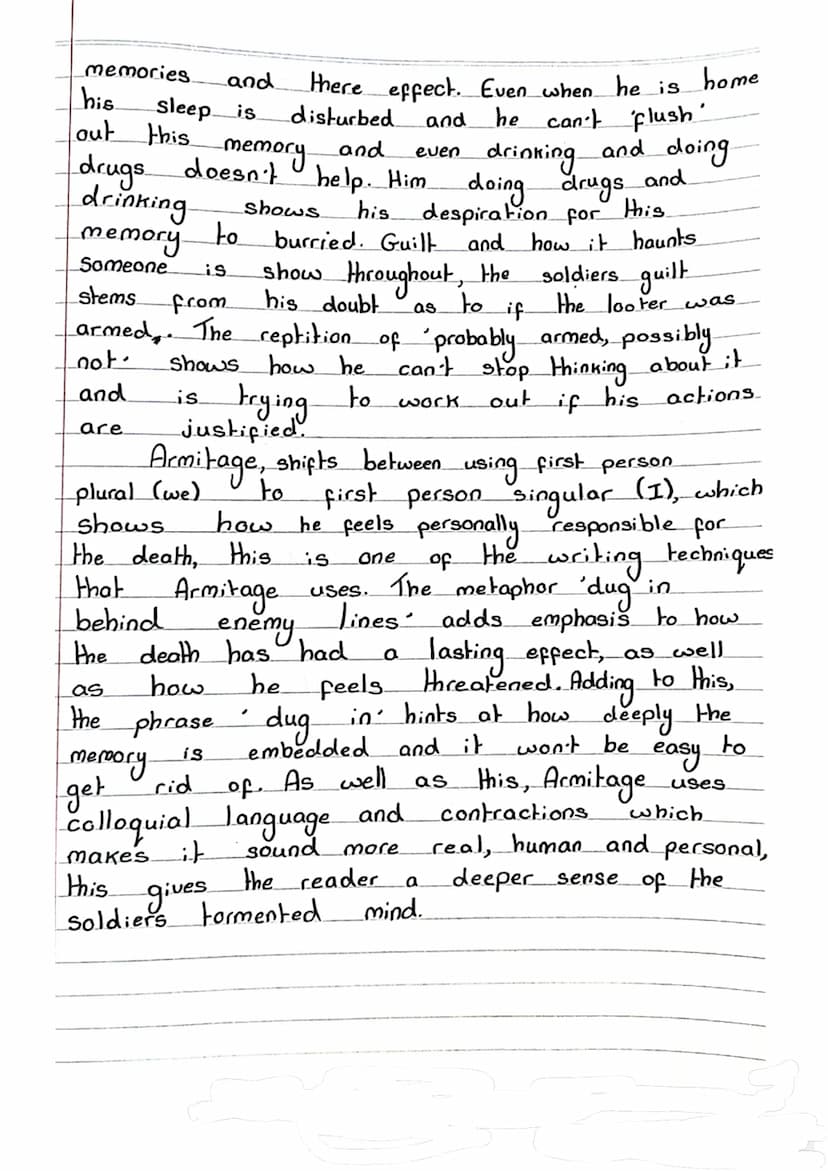 memories and there effect. Even when he is home
his sleep is disturbed and he can't 'flush'
out this memory and even drinking and doing
drugs doesn't help. Him doing drugs and
drinking shows his despiration for this
memory to burried. Guilt and how it haunts
someone is show throughout, the soldiers guilt
stems from his doubt as to if the looter was
armed,. The reptition of 'probably armed, possibly
not' shows how he can't stop thinking about it
and is trying to work out if his actions
are justified.
Armitage, shifts between using first person
plural (we) to first person singular (I), which
shows how he feels personally responsible for
the death, this is one of the writing techniques
that Armitage uses. The metaphor 'dug in
behind enemy lines' adds emphasis to how
the death has had a lasting effect, as well
as how he feels threatened. Adding to this,
the phrase 'dug in' hints at how deeply the
memory is embedded and it won't be easy to
get rid of. As well as this, Armitage uses
colloquial language and contractions which
makes it sound more real, human and personal,
this gives the reader a deeper sense of the
soldiers tormented mind.